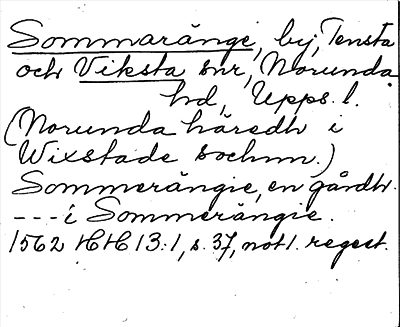 Sommaränge, by, Tensta
och Viksta snr, Norunda
hd, Upps. l.
(Norunda häredh i
Wixstade sochnn.)
Sommerängie, en gårdh.
---i Sommerängie.
1562 HH 13:1, s. 37, not 1. regest.